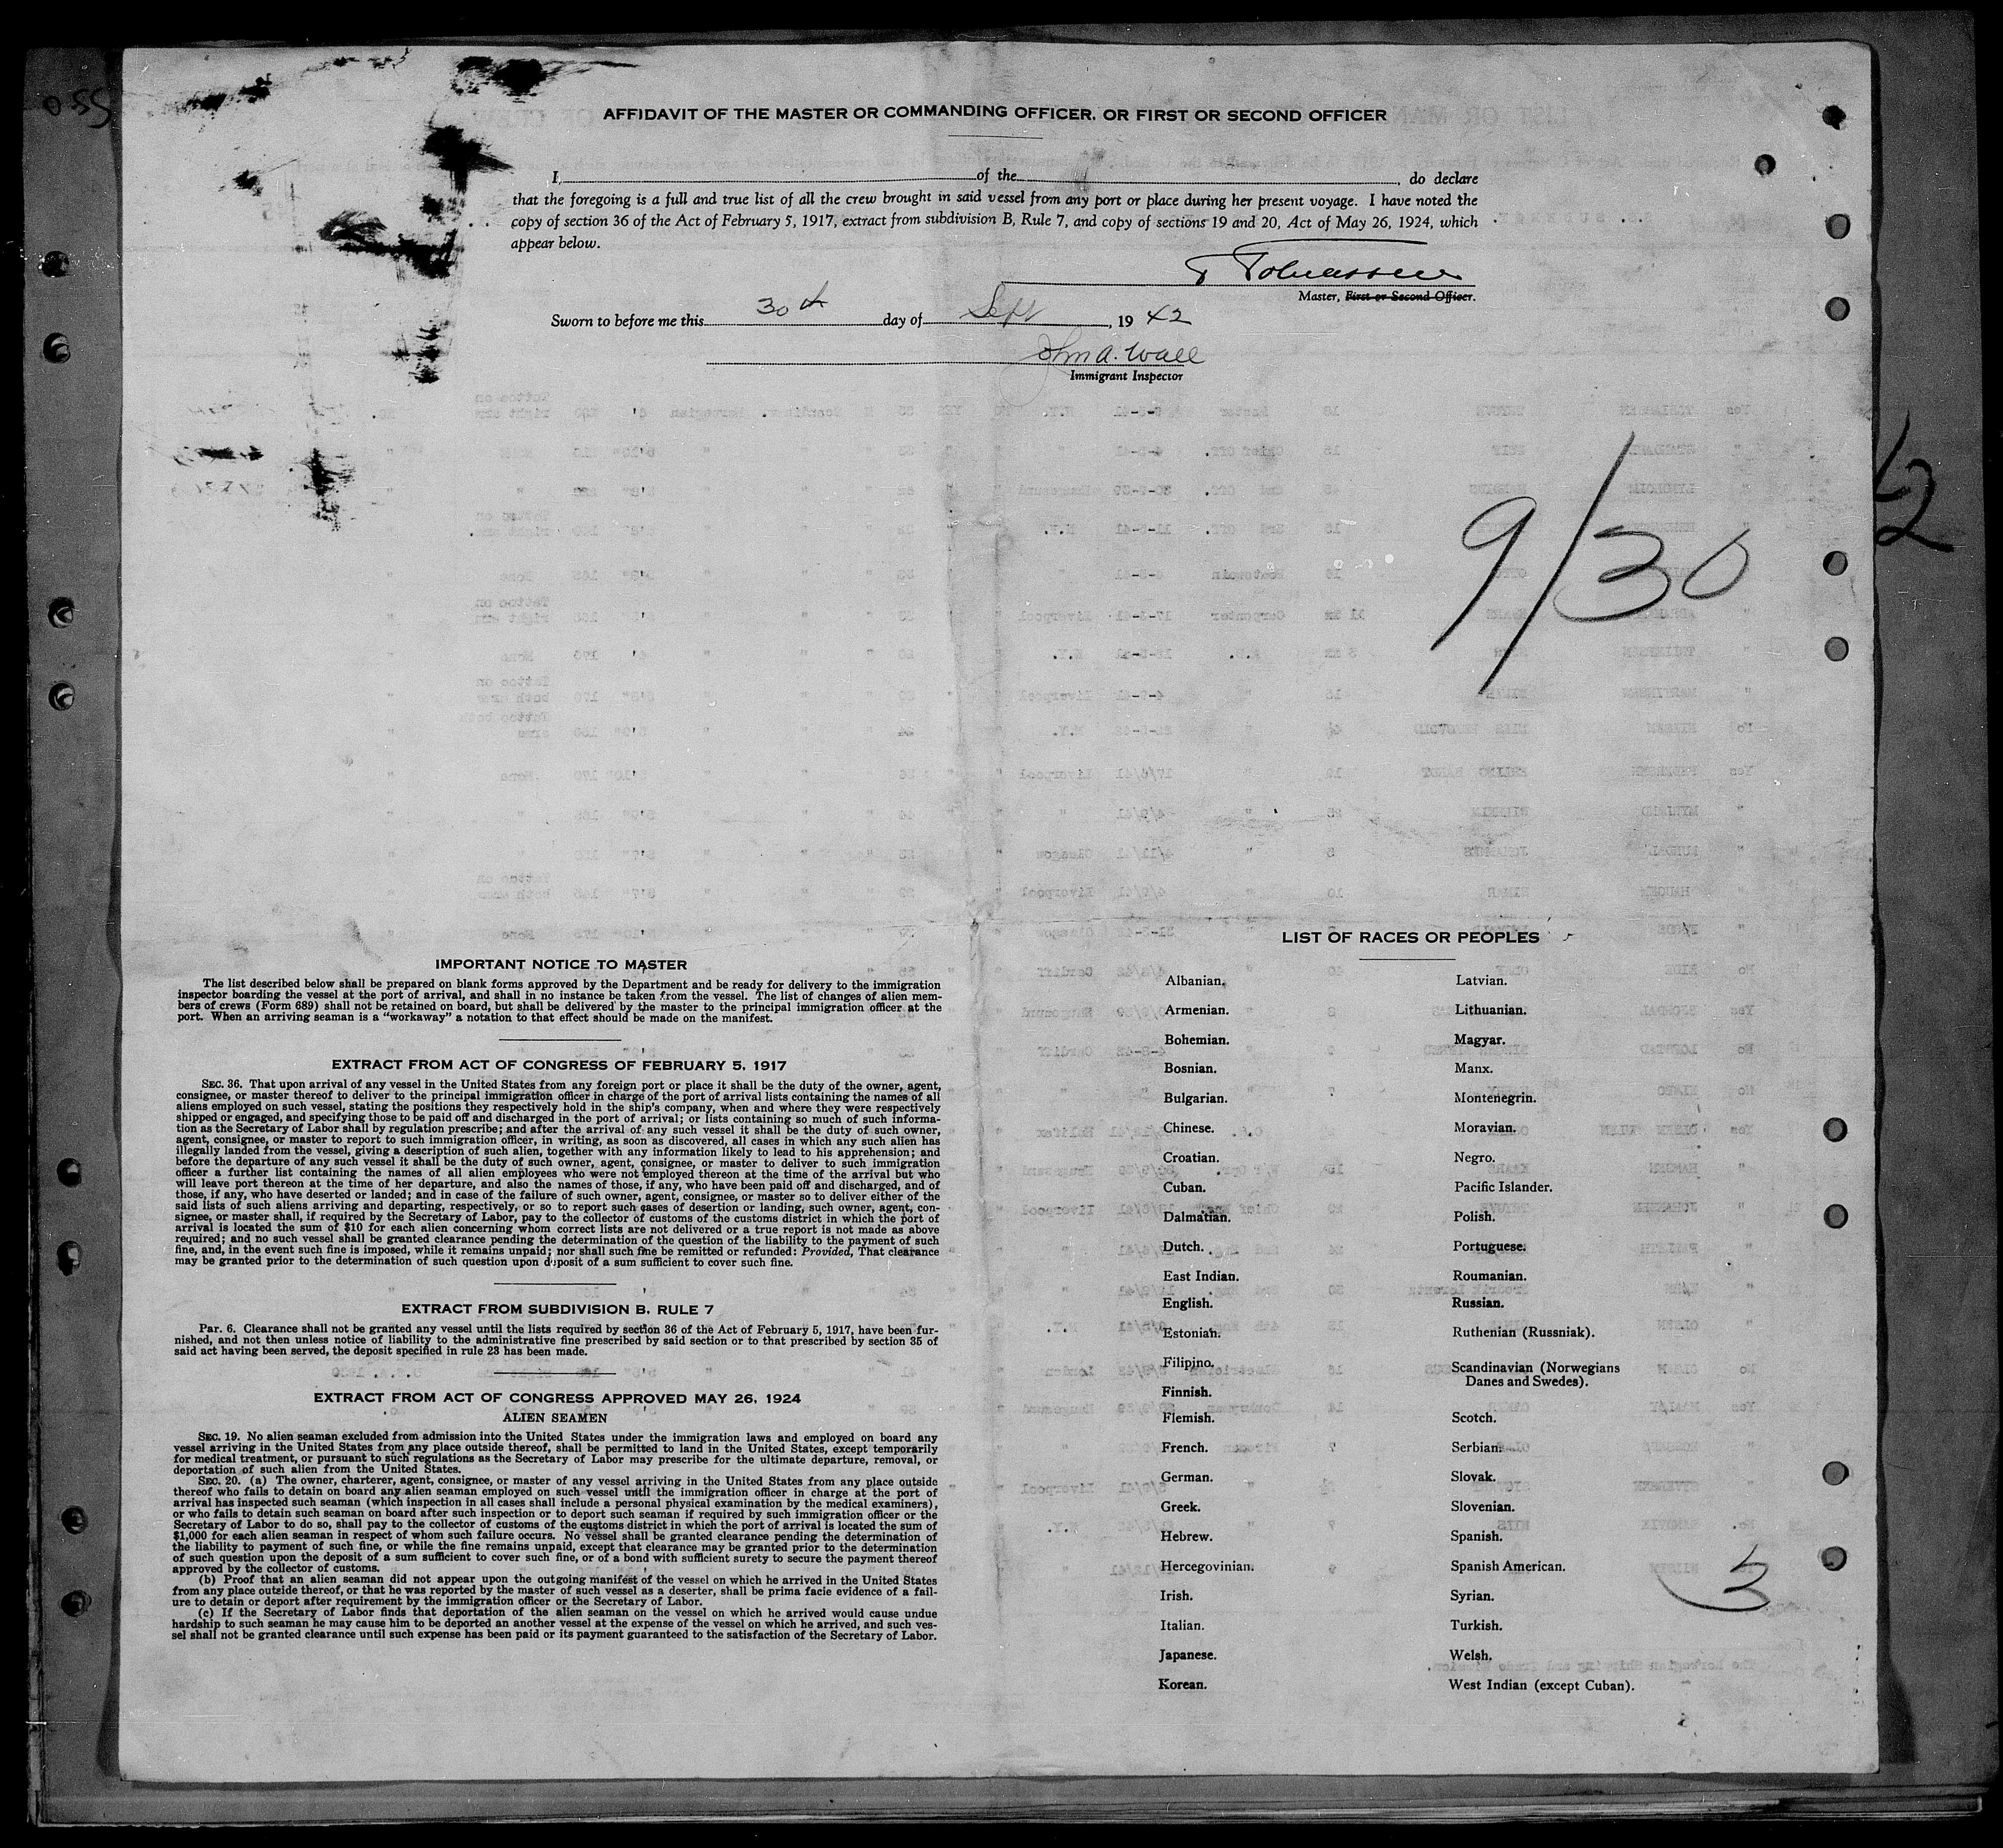 AFFIDAVIT OF THE MASTER OR COMMANDING OFFICER, OR FIRST OR SECOND OFFICER
I, of the , do declare
that the foregoing is a full and true list of all the crew brought in said vessel from any port or place during her present voyage. I have noted the
copy of section 36 of the Act of February 5, 1917, extract from subdivision B, Rule 7, and copy of sections 19 and 20, Act of May 26, 1924, which
appear below.
Master, First or Second Officer.
Sworn to before me this 30th day of Sept , 19 42
John A. Wall
Immigrant Inspector
9/30
IMPORTANT NOTICE TO MASTER
The list described below shall be prepared on blank forms approved by the Department and be ready for delivery to the immigration
inspector boarding the vessel at the port of arrival, and shall in no instance be taken from the vessel. The list of changes of alien mem-
bers of crews (Form 689) shall not be retained on board, but shall be delivered by the master to the principal immigration officer at the
port. When an arriving seaman is a "workaway" a notation to that effect should be made on the manifest.
EXTRACT FROM ACT OF CONGRESS OF FEBRUARY 5, 1917
SEC. 36. That upon arrival of any vessel in the United States from any foreign port or place it shall be the duty of the owner, agent,
consignee, or master thereof to deliver to the principal immigration officer in charge of the port of arrival lists containing the names of all
aliens employed on such vessel, stating the positions they respectively hold in the ship's company, when and where they were respectively
shipped or engaged, and specifying those to be paid off and discharged in the port of arrival; or lists containing so much of such informa-
tion as the Secretary of Labor shall by regulation prescribe; and after the arrival of any such vessel it shall be the duty of such owner,
agent, consignee, or master to report to such immigration officer, in writing, as soon as discovered, all cases in which any such alien has
illegally landed from the vessel, giving a description of such alien, together with any information likely to lead to his apprehension; and
before the departure of any such vessel it shall be the duty of such owner, agent, consignee, or master to deliver to such immigration
officer a further list containing the names of all alien employees who were not employed thereon at the time of the arrival but who
will leave port thereon at the time of her departure, and also the names of those, if any, who have been paid off and discharged, and of
those, if any, who have deserted or landed; and in case of the failure of such owner, agent, consignee, or master so to deliver either of the
said lists of such aliens arriving and departing, respectively, or so to report such cases of desertion or landing, such owner, agent, con-
signee, or master shall, if required by the Secretary of Labor, pay to the collector of customs of the customs district in which the port of
arrival is located the sum of $10 for each alien concerning whom correct lists are not delivered or a true report is not made as above
required; and no such vessel shall be granted clearance pending the determination of the question of the liability to the payment of such
fine, and, in the event such fine is imposed, while it remains unpaid; nor shall such fine be remitted or refunded: Provided, That clearance
may be granted prior to the determination of such question upon deposit of a sum sufficient to cover such fine.
EXTRACT FROM SUBDIVISION B, RULE 7
Par. 6. Clearance shall not be granted any vessel until the lists required by section 36 of the Act of February 5, 1917, have been fur-
nished, and not then unless notice of liability to the administrative fine prescribed by said section or to that prescribed by section 35 of
said act having been served, the deposit specified in rule 23 has been made.
EXTRACT FROM ACT OF CONGRESS APPROVED MAY 26, 1924
ALIEN SEAMEN
SEC. 19. No alien seaman excluded from admission into the United States under the immigration laws and employed on board any
vessel arriving in the United States from any place outside thereof, shall be permitted to land in the United States, except temporarily
for medical treatment, or pursuant to such regulations as the Secretary of Labor may prescribe for the ultimate departure, removal, or
deportation of such alien from the United States.
SEC. 20. (a) The owner, charterer, agent, consignee, or master of any vessel arriving in the United States from any place outside
thereof who fails to detain on board any alien seaman employed on such vessel until the immigration officer in charge at the port of
arrival has inspected such seaman (which inspection in all cases shall include a personal physical examination by the medical examiners),
or who fails to detain such seaman on board after such inspection or to deport such seaman if required by such immigration officer or the
Secretary of Labor to do so, shall pay to the collector of customs of the customs district in which the port of arrival is located the sum of
$1,000 for each alien seaman in respect of whom such failure occurs. No vessel shall be granted clearance pending the determination of
the liability to payment of such fine, or while the fine remains unpaid, except that clearance may be granted prior to the determination
of such question upon the deposit of a sum sufficient to cover such fine, or of a bond with sufficient surety to secure the payment thereof
approved by the collector of customs.
(b) Proof that an alien seaman did not appear upon the outgoing manifest of the vessel on which he arrived in the United States
from any place outside thereof, or that he was reported by the master of such vessel as a deserter, shall be prima facie evidence of a fail-
ure to detain or deport after requirement by the immigration officer or the Secretary of Labor.
(c) If the Secretary of Labor finds that deportation of the alien seaman on the vessel on which he arrived would cause undue
hardship to such seaman he may cause him to be deported an another vessel at the expense of the vessel on which he arrived, and such ves-
sel shall not be granted clearance until such expense has been paid or its payment guaranteed to the satisfaction of the Secretary of Labor.
LIST OF RACES OR PEOPLES
Albanian.
Armenian.
Bohemian.
Bosnian.
Bulgarian.
Chinese.
Croatian.
Cuban.
Dalmatian.
Dutch.
East Indian.
English.
Estonian.
Filipino.
Finnish.
Flemish.
French.
German.
Greek.
Hebrew.
Hercegovinian.
Irish.
Italian.
Japanese.
Korean.
Latvian.
Lithuanian.
Magyar.
Manx.
Montenegrin.
Moravian.
Negro.
Pacific Islander.
Polish.
Portuguese.
Roumanian.
Russian.
Ruthenian (Russniak).
Scandinavian (Norwegians
Danes and Swedes).
Scotch.
Serbian.
Slovak.
Slovenian.
Spanish.
Spanish American.
Syrian.
Turkish.
Welsh.
West Indian (except Cuban).
3